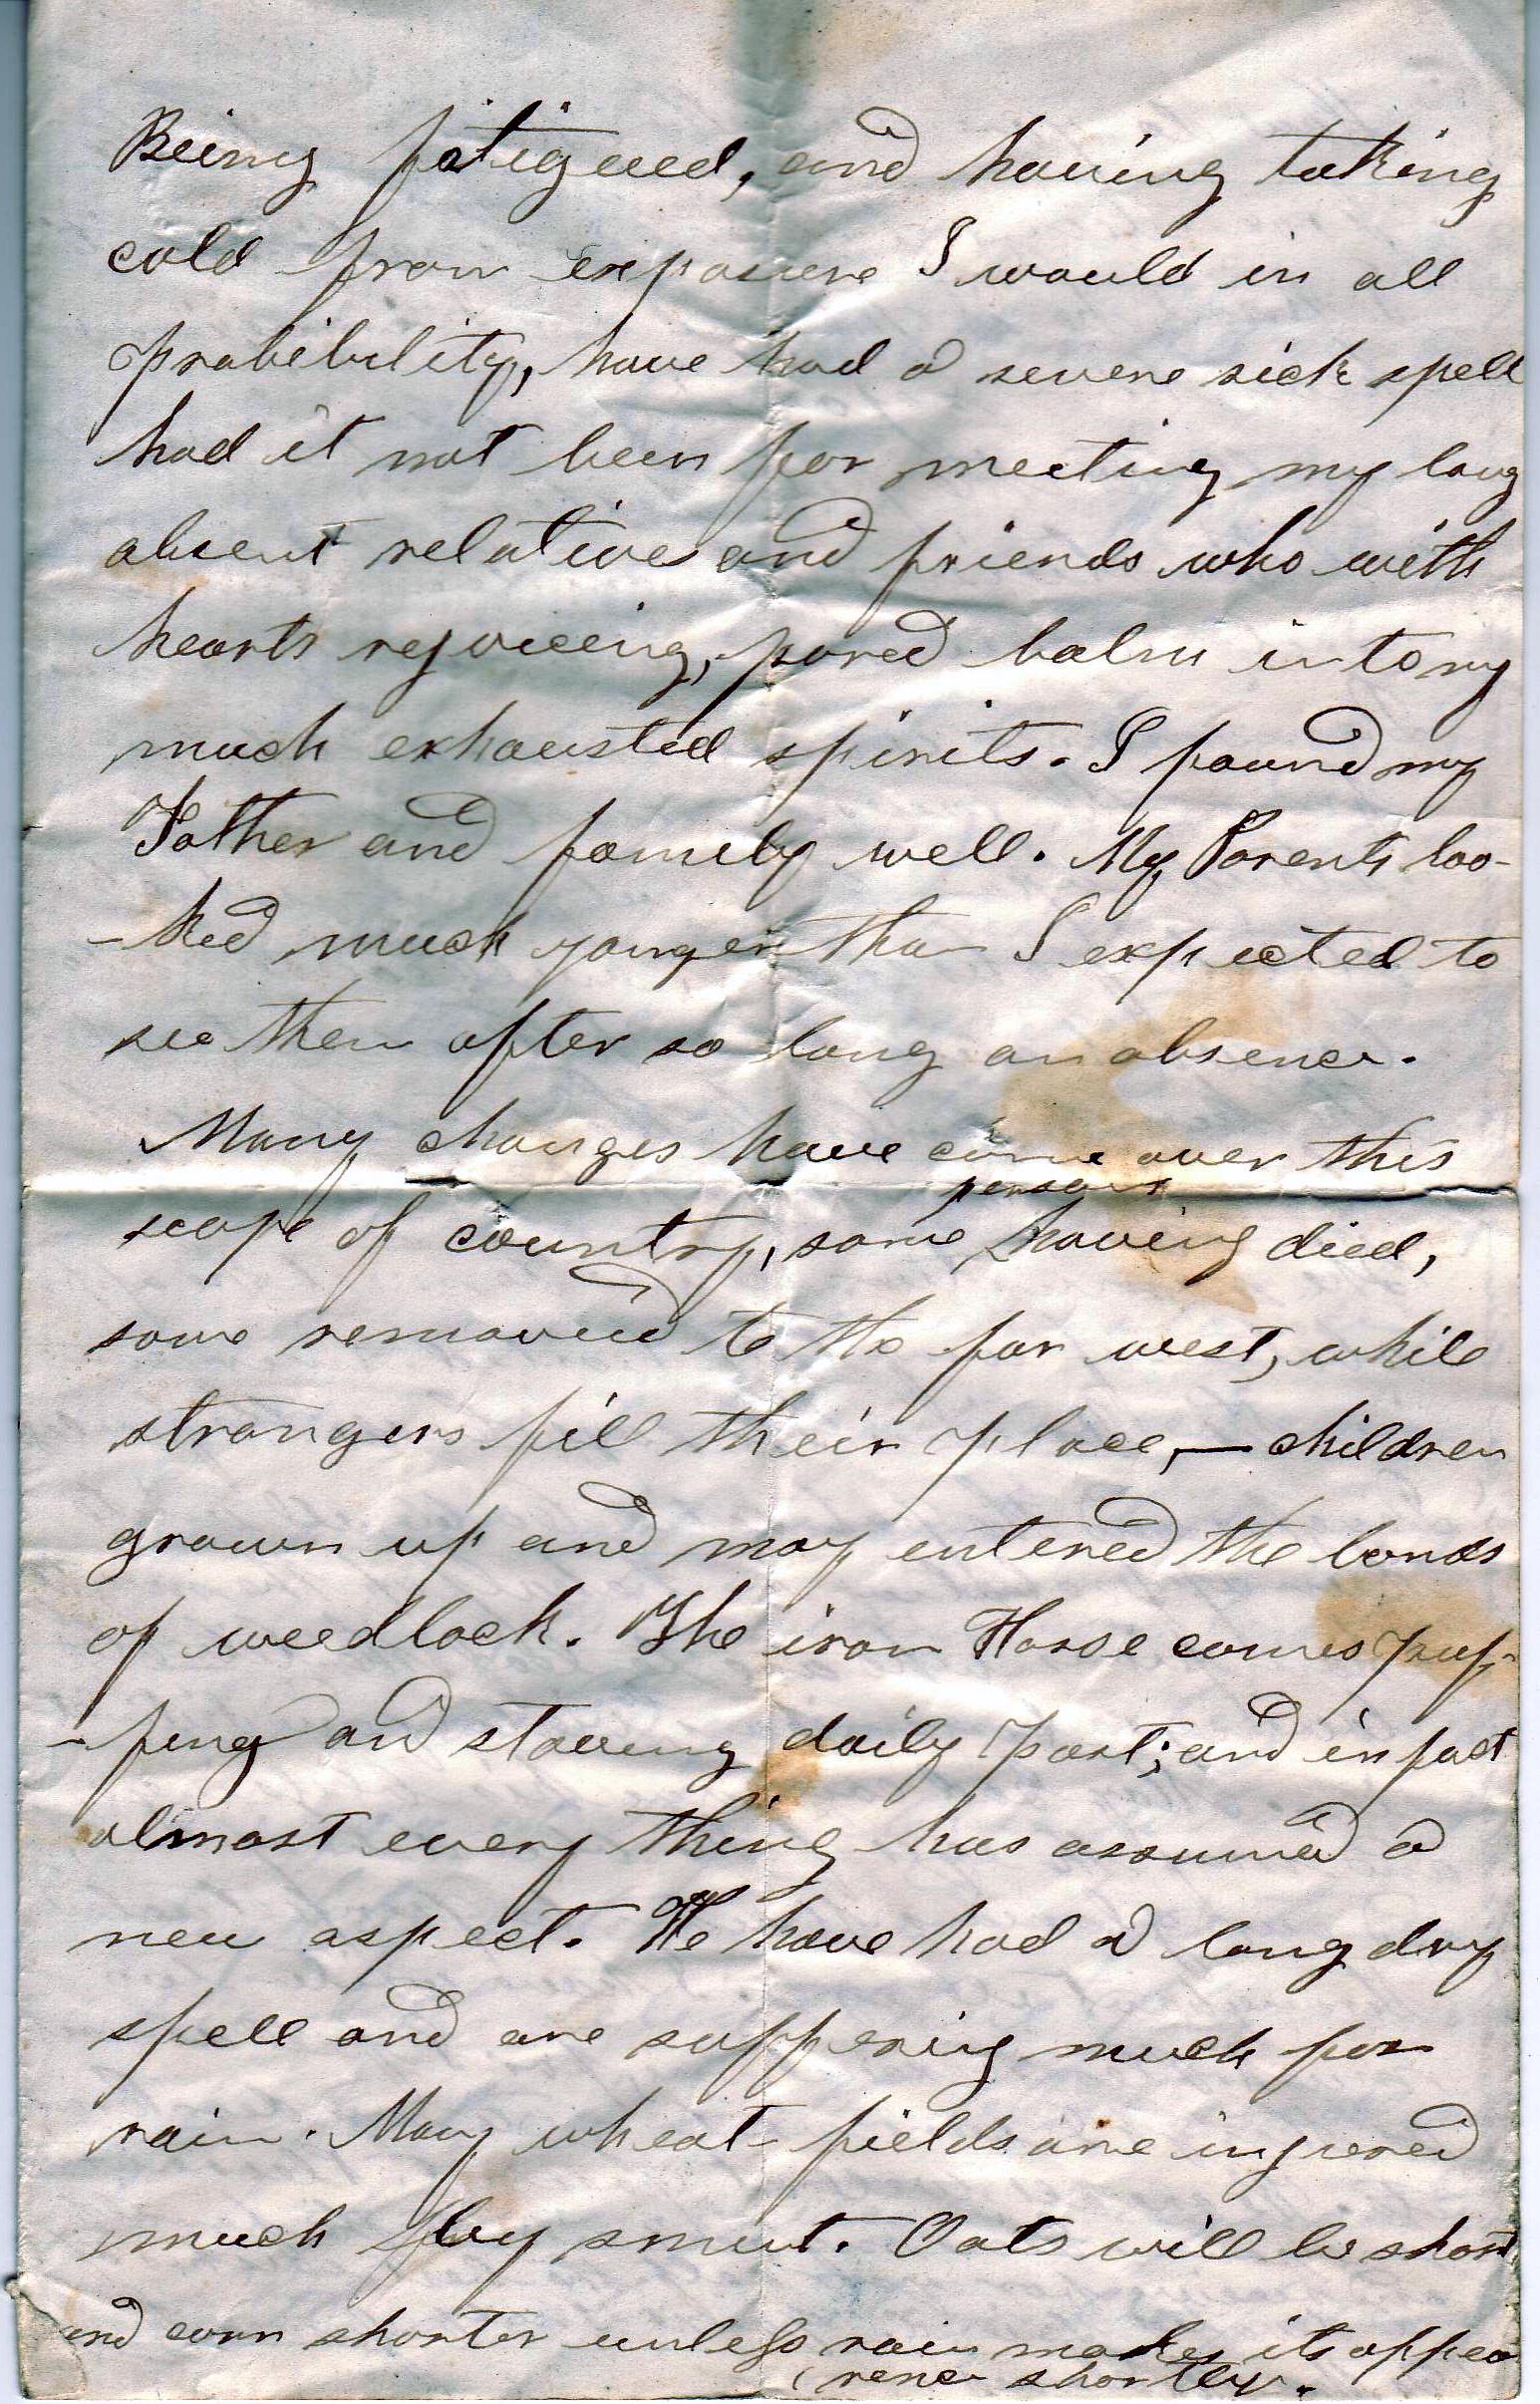 Being fatigued, and having taking
cold from exposure I would in all
probibility, have had a severe sick spell
had it not been for meeting my long
absent relatives and friends who with
hearts rejoiceing, pored balm into my
much exhausted spirits. I found my
Father and family well. My Parents loo-
-ked much younger than I expected to
see them after so long an absence.
Many changes have come over this
persons
scope of country, some having died,
some removed to the far west, while
strangers fill their place, — children
grown up and may entered the bonds
of weedlock. The iron Horse comes puf-
-fing and staving daily past; and in fact
almost every thing has assumed a
new aspect. We have had a long dry
spell and are suffering much for
rain. Many wheat-fields are injured
much by smut. Oats will be short
and corn shorter unless rain makes its appea
rence shortly.